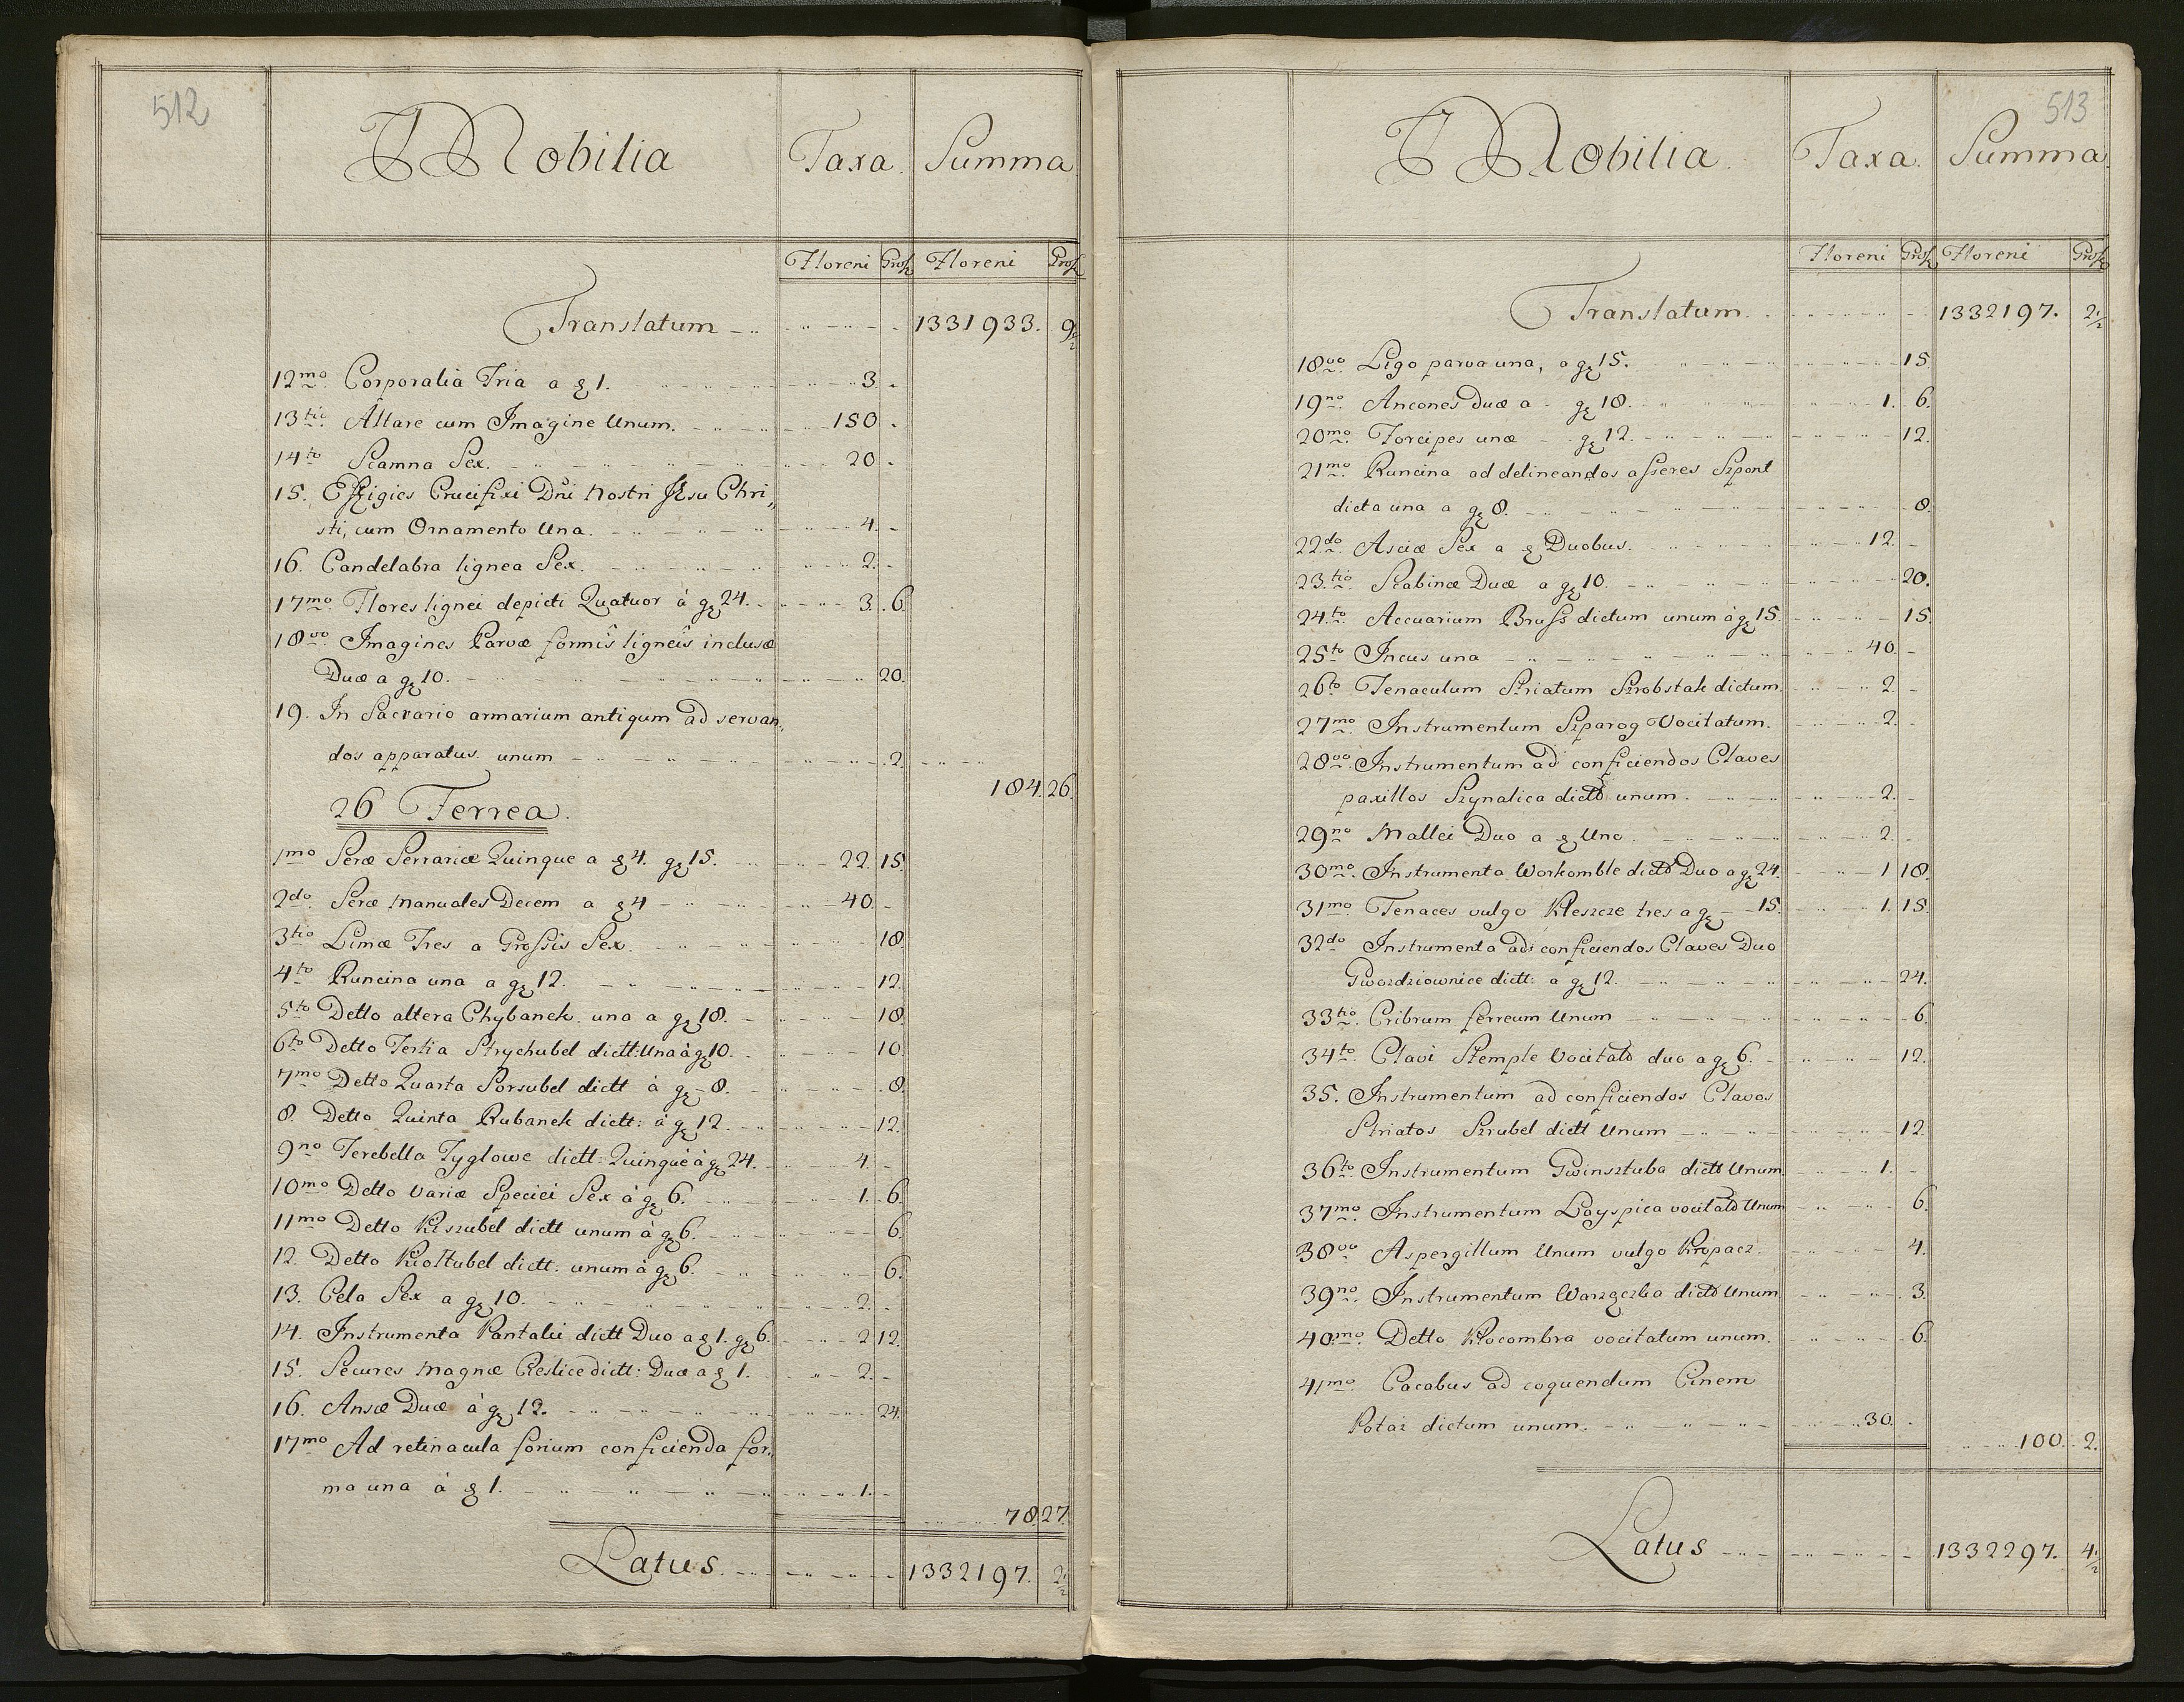 512
Mobilia Taxa. Summa
Floreni Gross Floreni Gross
Translatum 1331933. 9 1/2
12mo Corporalia Tria a fl 1. 3. -
13tio Altare cum Imagine Unum. 150 -
14to Scamna Sex. 20 -
15. Effigies Crucifixi Dni Nostri Jesu Chri„
sti, cum Ornamento Una. 4. -
16. Candelabra lignea Sex. 2. -
17mo Flores lignei depicti Quatuor à gr 24. 3. 6.
18vo Imagines Parvæ formis ligneis inclusæ
Duæ a gr 10. 20.
19. In Sacrario armarium antiqum ad servan„
dos apparatus unum 2.
184. 26.
26 Ferrea.
1mo Seræ Serrariæ Quinque a fl 4. gr 15. 22. 15.
2do Seræ Manuales Decem a fl 4 40. -
3tio Limæ Tres a Grossis Sex. 18
4to Runcina una a gr 12. 12.
5to Detto altera Chybanek una a gr 18. 18.
6to Detto Tertia Strychubel dictt: Una à gr 10. 10.
7mo Detto Quarta Sorsubel dictt à gr 8. 8.
8. Detto Quinta Rubanek dictt: à gr 12. 12.
9no Terebella Tyglowe dictt Quinque à gr 24. 4. -
10mo Detto Variæ Speciei Sex à gr 6. 1. 6.
11mo Detto Kiszubel dictt unum à gr 6. 6.
12. Detto Kioltubel dictt: unum à gr 6. 6.
13. Cela Sex a gr 10. 2. -
14. Instrumenta Kantalii dictt Duo a fl 1. gr 6. 2 12.
15. Secures Magnæ Cieslice dictt: Duæ a fl 1. 2. -
16. Ansæ Duæ à gr 12. 24.
17mo Ad retinacula forium conficienda for„
ma una à fl 1. 1. -
78. 27.
Latus. 1332197. 2 1/2
513
Mobilia. Taxa. Summa.
Floreni Gross Floreni Gross
Translatum. 1332197. 2 1/2
18vo Ligo parva una, a gr 15. 15.
19no Ancones Duæ a gr 18. 1. 6.
20mo Forcipes unæ gr 12. 12.
21mo Runcina ad delineandos asseres Szpont
dicta una a gr 8. 8.
22do Asciæ Sex a fl Duobus. 12. -
23tio Scabinæ Duæ a gr 10. 20.
24to Accuarium Bruss dictum unum à gr 15. 15.
25to Incus una 40. -
26to Tenaculum Striatum Szrobstak dictum. 2. -
27mo Instrumentum Szparog Vocitatum. 2. -
28vo Instrumentum ad conficiendos Claves
paxillos Szynalica dictt unum. 2. -
29no Mallei Duo a fl Uno. 2. -
30mo Instrumenta Workomble dictt Duo a gr 24. 1 18.
31mo Tenaces vulgo Kleszcze tres a gr 15. 1. 15.
32do Instrumenta ad conficiendos Claves Duo
Gwozdziownice dictt: a gr 12. 24.
33tio Cribrum ferreum Unum 6.
34to Clavi Stemple Vocitatt duo a gr 6. 12.
35. Instrumentum ad conficiendos Clavos
Striatos Szrubel dictt Unum 12.
36to Instrumentum Gwinsztuba dictt Unum. 1. -
37mo Instrumentum Layspica vocitatt Unum 6.
38vo Aspergillum Unum vulgo Kropacz. 4.
39no Instrumentum Warzęczka dictt Unum. 3.
40mo Detto Klocombra vocitatum unum. 6.
41mo Cacabus ad coquendum Cinem
Potaz dictum unum. 30. -
100. 2.
Latus 1332297. 4 1/2